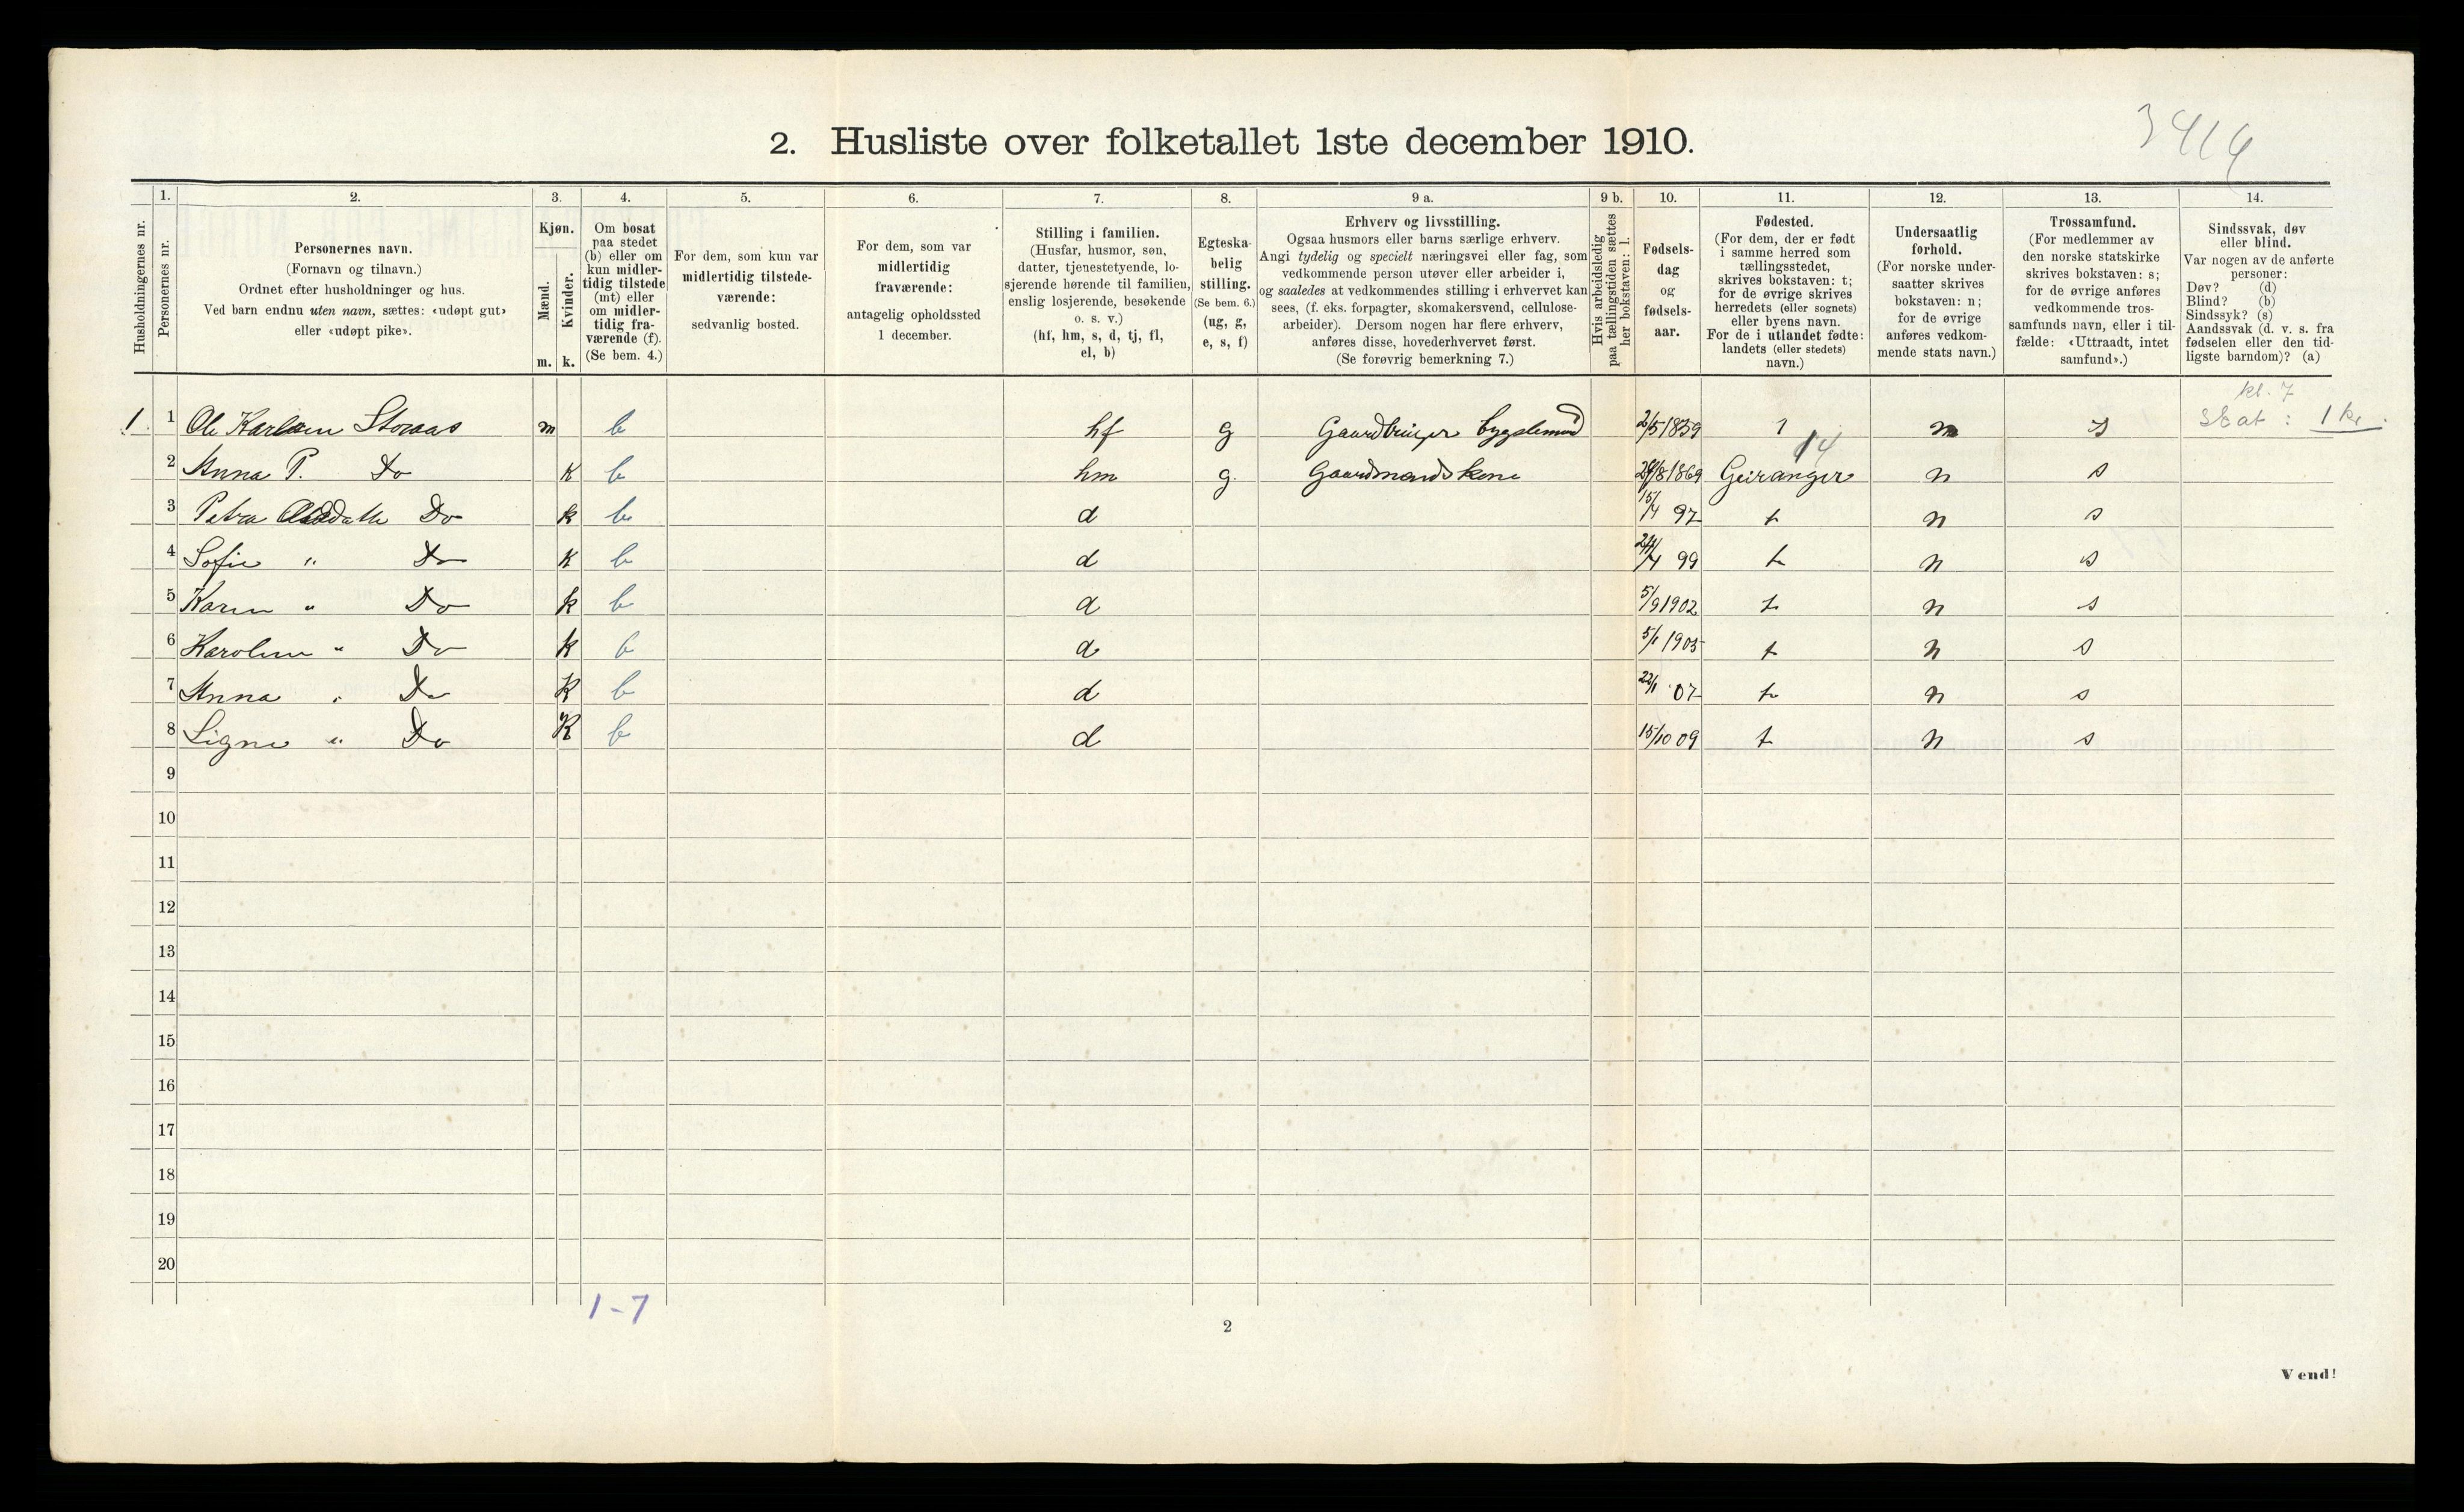 3414
2. Husliste over folketallet 1ste december 1910.
Husholdningernes nr.
1.
Personernes nr.
2.
Personernes navn.
(Fornavn og tilnavn.)
Ordnet efter husholdninger og hus.
Ved barn endnu uten navn, sættes: «udøpt gut»
eller «udøpt pike».
3.
Kjøn.
Mænd.
Kvinder.
m. k.
4.
Om bosat
paa stedet
(b) eller om
kun midler-
tidig tilstede
(mt) eller
om midler-
tidig fra-
værende (f).
(Se bem. 4.)
5.
For dem, som kun var
midlertidig tilstede-
værende:
sedvanlig bosted.
6.
For dem, som var
midlertidig
fraværende:
antagelig opholdssted
1 december.
7.
Stilling i familien.
(Husfar, husmor, søn,
datter, tjenestetyende, lo-
sjerende hørende til familien,
enslig losjerende, besøkende
o. s. v.)
(hf, hm, s, d, tj, fl,
el, b)
8.
Egteska-
belig
stilling.
(Se bem. 6.)
(ug, g,
e, s, f)
9 a.
Erhverv og livsstilling.
Ogsaa husmors eller barns særlige erhverv.
Angi tydelig og specielt næringsvei eller fag, som
vedkommende person utøver eller arbeider i,
og saaledes at vedkommendes stilling i erhvervet kan
sees, (f. eks. forpagter, skomakersvend, cellulose-
arbeider). Dersom nogen har flere erhverv,
anføres disse, hovederhvervet først.
(Se forøvrig bemerkning 7.)
9 b.
Hvis arbeidsledig
paa tællingstiden sættes
her bokstaven: l.
10.
Fødsels-
dag
og
fødsels-
aar.
11.
Fødested.
(For dem, der er født
i samme herred som
tællingsstedet,
skrives bokstaven: t;
for de øvrige skrives
herredets (eller sognets)
eller byens navn.
For de i utlandet fødte:
landets (eller stedets)
navn.)
12.
Undersaatlig
forhold.
(For norske under-
saatter skrives
bokstaven: n;
for de øvrige
anføres vedkom-
mende stats navn.)
13.
Trossamfund.
(For medlemmer av
den norske statskirke
skrives bokstaven: s;
for de øvrige anføres
vedkommende tros-
samfunds navn, eller i til-
fælde: «Uttraadt, intet
samfund».)
14.
Sindssvak, døv
eller blind.
Var nogen av de anførte
personer:
Døv? (d)
Blind? (b)
Sindssyk? (s)
Aandssvak (d. v. s. fra
fødselen eller den tid-
ligste barndom)? (a)
kl. 7
1. 1 Ole Karlsen Storaas m b hf g Gaardbruger bygslemand 2/5 1859 t n s Skat: 1 kr.
14
2 Anna P. Do k b hm g. Gaardmands kone 24/8 1869 Geiranger n s
3 Petra Do k b d 15/4 97 t n s
4 Sofie " Do k b d 24/4 99 t n s
5 Karen " Do k b d 5/9 1902 t n s
6 Karoline " Do k b d 5/1 1905 t n s
7 Anna " Do K b d 22/1 07 t n s
8 Signe " Do K b d 15/10 09 t n s
9
10
11
12
13
14
15
16
17
18
19
20
1-7
2
Vend!